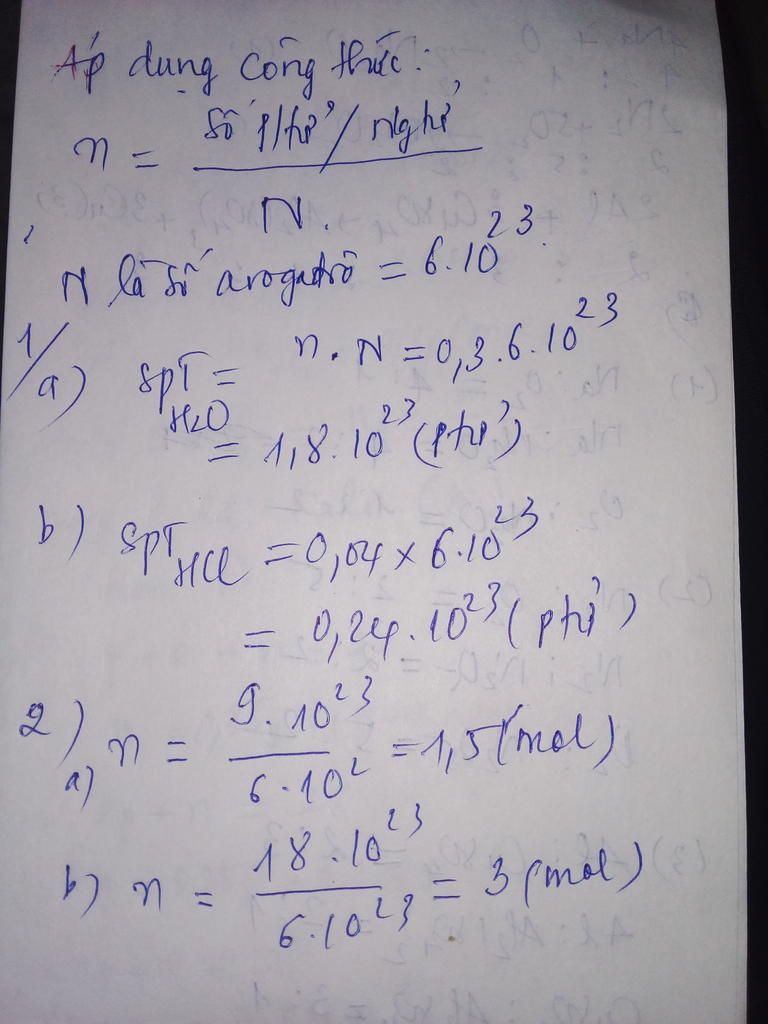 Áp dụng công thức:
n = số p/tử / ngtử
N.
N là số avogadrô = 6.10²³.
1/a) SpT H₂O = n.N = 0,3.6.10²³
= 1,8.10²³ (ptử)
b) SpT HCl = 0,04 x 6.10²³
= 0,24.10²³ (ptử)
2) a) n = 9.10²³ / 6.10² = 1,5 (mol)
b) n = 18.10²³ / 6.10²³ = 3 (mol)